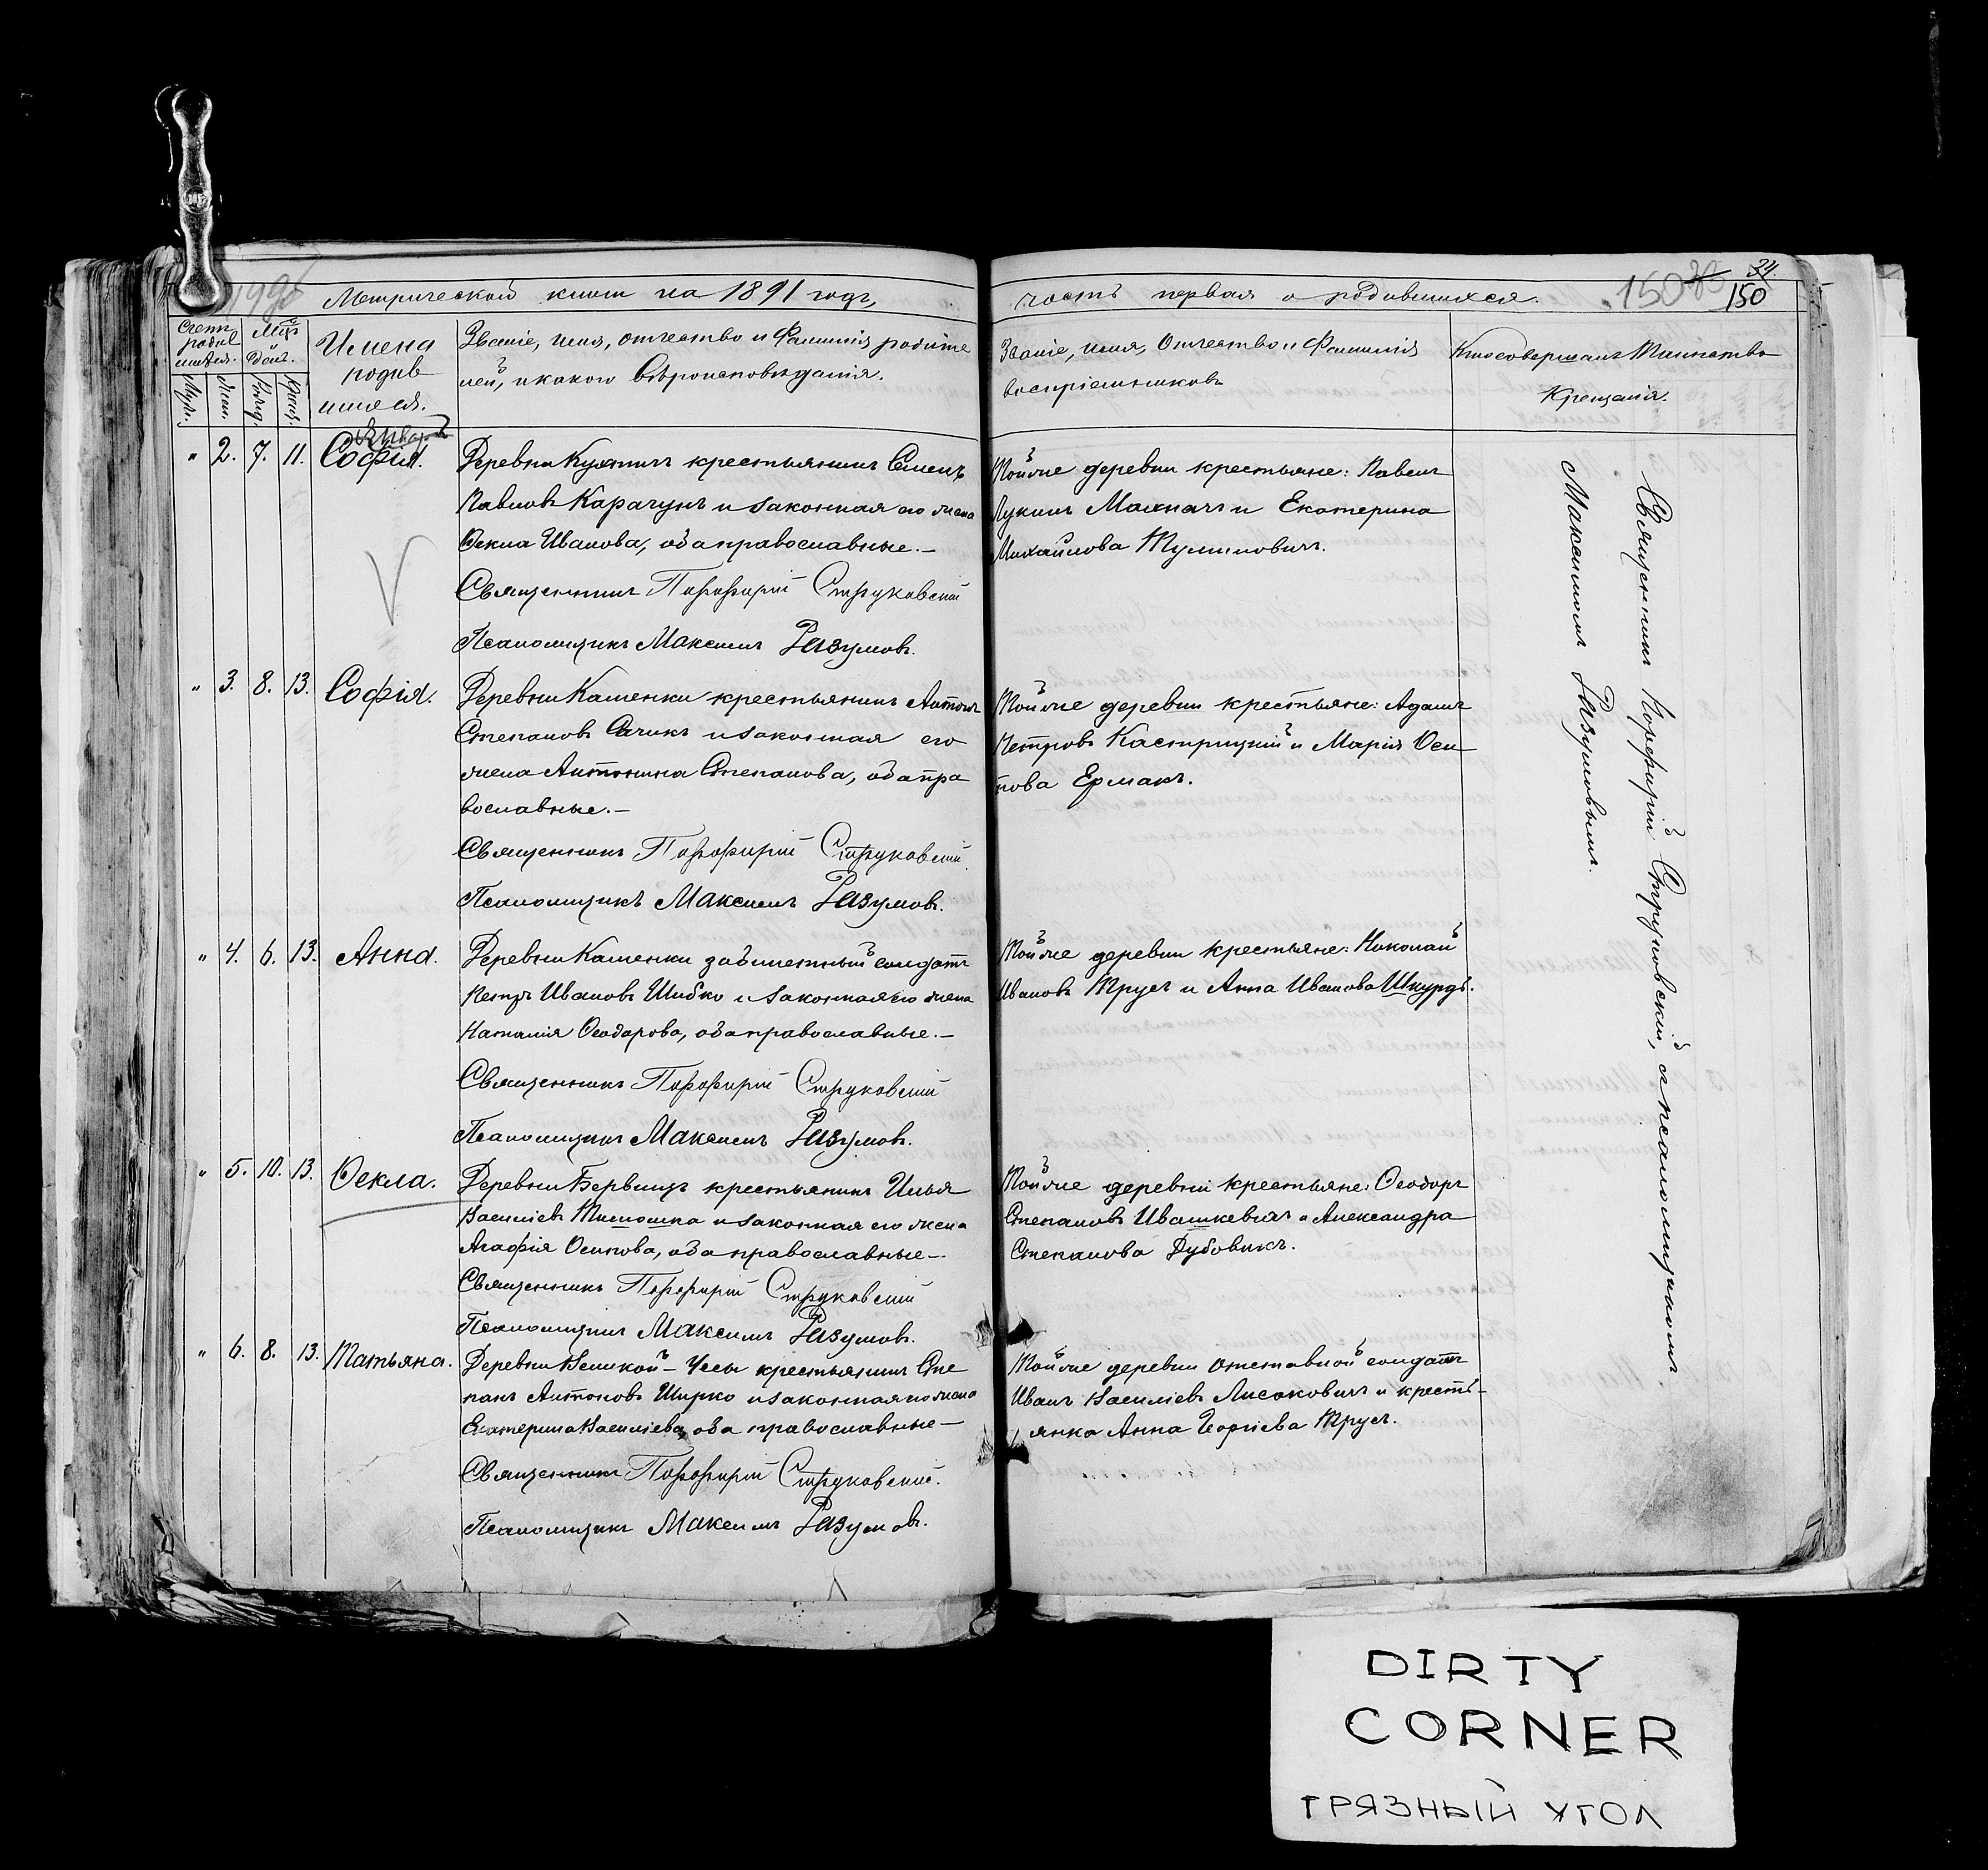 Метрической книги на 1891 годъ,
Счетъ родив шихся.
Мѣсц. и день.
Муж. Жен. Рожд. Крещ.
Имена
родив
шихся.
Званіе, имя, отчество и Фамилія родите
лей, и какого вѣроисповѣданія.
Января
" 2. 7. 11. Софія.
Деревни крестьянинъ Семенъ
Павловъ Карачунъ и законная его жена
Ѳекла Иванова, оба православные.—
Священникъ Порфирій Струковскій
Псаломщикъ Максимъ Разумовъ.
" 3. 8. 13. Софія.
Деревни Каменки крестьянинъ Антонъ
Степановъ Сачикъ и законная его
жена Антонина Степанова, оба пра
вославные.—
Священникъ Порфирій Струковскій.
Псаломщикъ Максимъ Разумовъ.
" 4. 6. 13. Анна.
Деревни Каменки забилетный солдатъ
Петръ Ивановъ Шибко и законная его жена
Наталія Ѳеодорова, оба православные.—
Священникъ Порфирій Струковскій
Псаломщикъ Максимъ Разумовъ.
" 5. 10. 13. Ѳекла.
Деревни крестьянинъ Илья
Васильевъ Тимошка и законная его жена
Агафія Осипова, оба православные—.
Священникъ Порфирій Струковскій
Псаломщикъ Максимъ Разумовъ.
" 6. 8. 13. Татьяна.
Деревни Великой— Усы крестьянинъ Сте
панъ Антоновъ Ширко и законная его жена
Екатерина Васильева, оба православные—
Священникъ Порфирій Струковскій.
Псаломщикъ Максимъ Разумовъ.
часть первая о родившихся.
150
34.
150
Званіе, имя, Отчество и Фамилія
воспріемниковъ
Кто совершалъ Таинство
Крещенія.
Той же деревни крестьяне: Павелъ
Лукинъ Махначъ и Екатерина
Михайлова Тумиловичъ.
Той же деревни крестьяне: Адамъ
Петровъ Кастрицкій и Марія Оси
пова Ермакъ.
Той же деревни крестьяне: Николай
Ивановъ Трусъ и Анна Иванова Шкурдь.
Той же деревни крестьяне: Ѳеодоръ
Степановъ Ивашкевичъ и Александра
Степанова Дубовикъ.
Той же деревни отставной солдатъ
Иванъ Васильевъ Лисаковичъ и кресть-
янка Анна Георгіева Трусъ.
Священникъ Порфирій Струковскій, съ псаломщикомъ
Максимомъ Разумовымъ.
DIRTY
CORNER
ГРЯЗНЫЙ УГОЛ